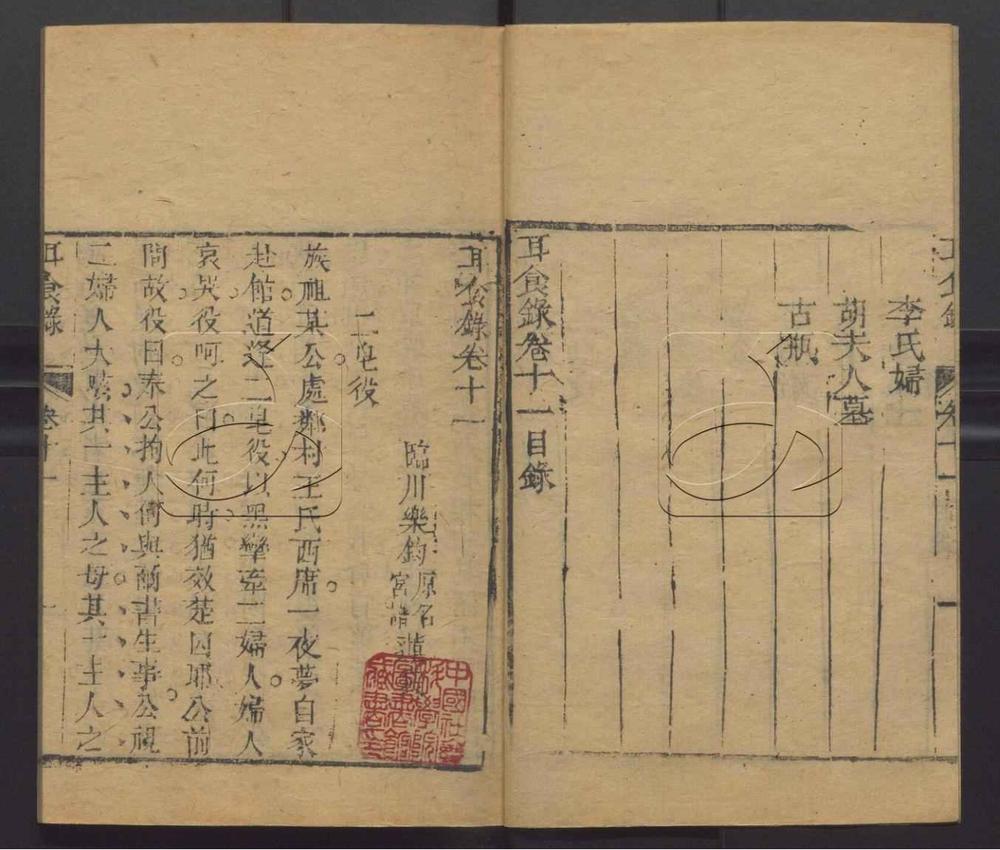 耳食錄
卷十一
李氏婦
胡夫人墓
古瓶
耳食錄卷十一目錄
耳食錄卷十一
臨川樂鈞
原名
宮譜
二皂役
族祖某公處鄰村王氏西席一夜夢自家
赴館道逢二皂役以黑縴牽二婦人婦人
哀哭役呵之曰此何時猶效楚囚耶公前
問故役曰奉公拘人何與爾書生事公視
二婦人大駭其一主人之母其一主人之
耳食錄
卷十一
一